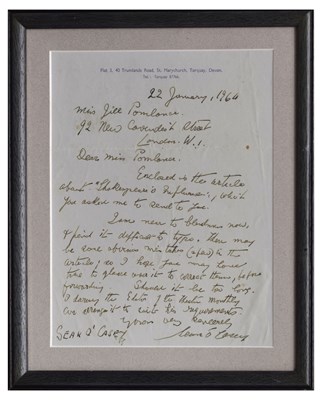 Flat 3, 40 Trumlands Road, St. Marychurch, Torquay, Devon.
Tel: Torquay
22 January, 1964
Miss Jill Pomlance.
92 New Cavendish Street
London. W.1.
Dear Miss Pomlance.
Enclosed is the article
about "Shakespeare's Influence", which
you asked me to send to you.
I am near to blindness now,
& find it difficult to type. There may
be some obvious mistakes in the
article; so I hope you may have
time to glance over it to correct them, before
forwarding. Should it be too long,
the Editor of the
can arrange it to suit his requirements.
Yours very sincerely
Sean O'Casey
SEAN O'CASEY